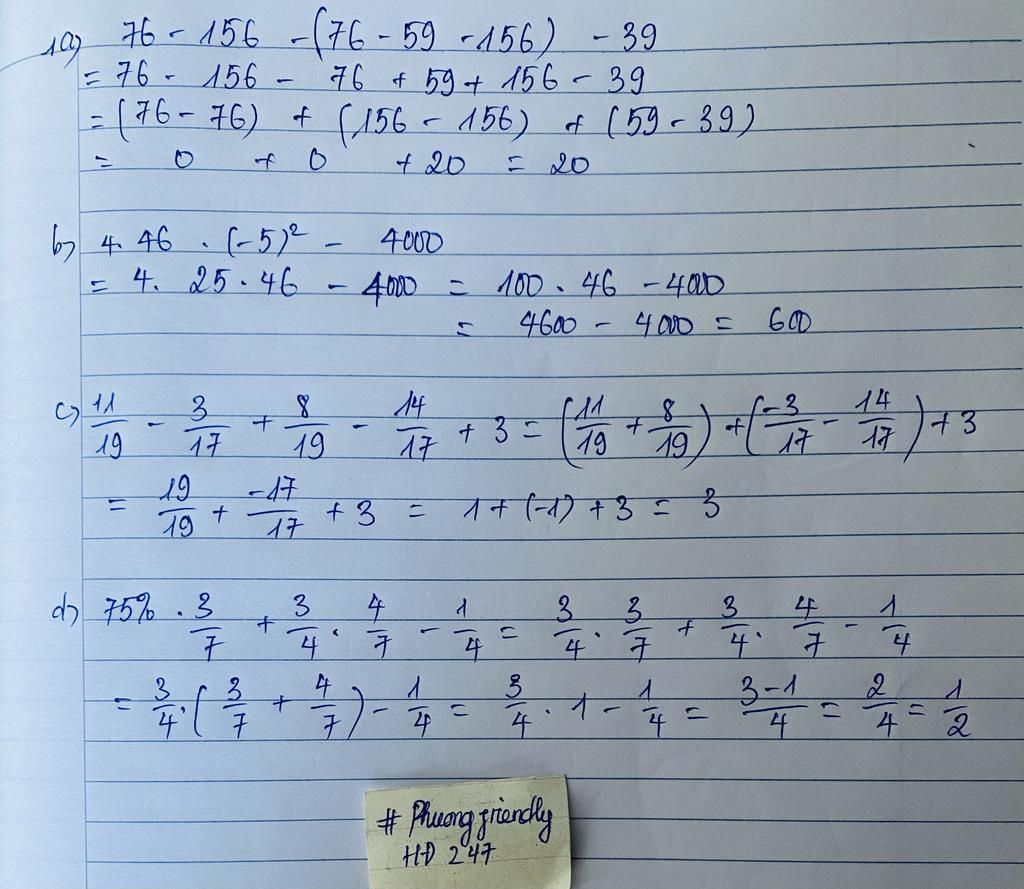 1a) 76 - 156 - (76 - 59 - 156) - 39
= 76 - 156 - 76 + 59 + 156 - 39
= (76 - 76) + (156 - 156) + (59 - 39)
= 0 + 0 + 20 = 20
b) 4. 46 . (-5)² - 4000
= 4. 25 . 46 - 4000 = 100 . 46 - 4000
= 4600 - 4000 = 600
c) 11/19 - 3/17 + 8/19 - 14/17 + 3 = (11/19 + 8/19) + (-3/17 - 14/17) + 3
= 19/19 + -17/17 + 3 = 1 + (-1) + 3 = 3
d) 75% . 3/7 + 3/4 . 4/7 - 1/4 = 3/4 . 3/7 + 3/4 . 4/7 - 1/4
= 3/4 . (3/7 + 4/7) - 1/4 = 3/4 . 1 - 1/4 = 3-1/4 = 2/4 = 1/2
# Phuongfriendly
HĐ 247